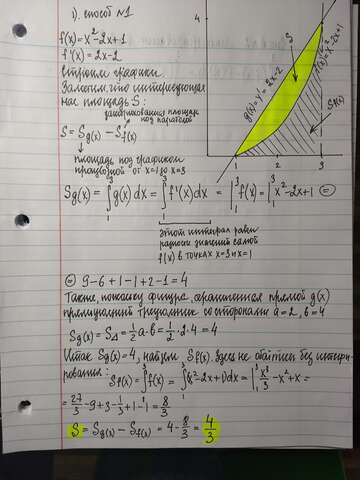 1). способ №1
f(x)=x²-2x+1
f'(x)=2x-2
Строим графики.
Заметим, что интересующая
нас площадь S:
заштрихованная площадь
под параболой
S = S g(x) - S f(x)
площадь под графиком
производной от x=1 до x=3
4
1 2 3
S
g(x)=y'=2x-2
f(x)=x²-2x+1
S f(x)
S g(x) = ∫₁³ g(x) dx = ∫₁³ f'(x) dx = |₁³ f(x) = |₁³ x²-2x+1 =
этот интеграл равен
разности значений самой
f(x) в точках x=3 и x=1
= 9-6+1-1+2-1=4
Также, поскольку фигура, ограниченная прямой g(x)
прямоугольный треугольник со сторонами a=2, b=4
S g(x) = S△ = 1/2 a·b = 1/2·2·4 = 4
Итак S g(x) = 4, найдём S f(x). Здесь не обойтись без интегри-
рования: S f(x) = ∫₁³ f(x) = ∫₁³ (x²-2x+1) dx = |₁³ x³/3 - x² + x =
= 27/3 - 9 + 3 - 1/3 + 1 - 1 = 8/3
S = S g(x) - S f(x) = 4 - 8/3 = 4/3